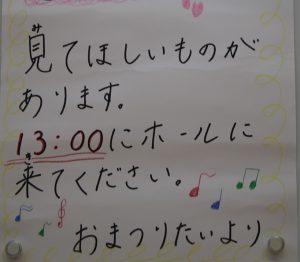 見てほしいものが
あります。
13:00にホールに
来てください。
おまつりたいより